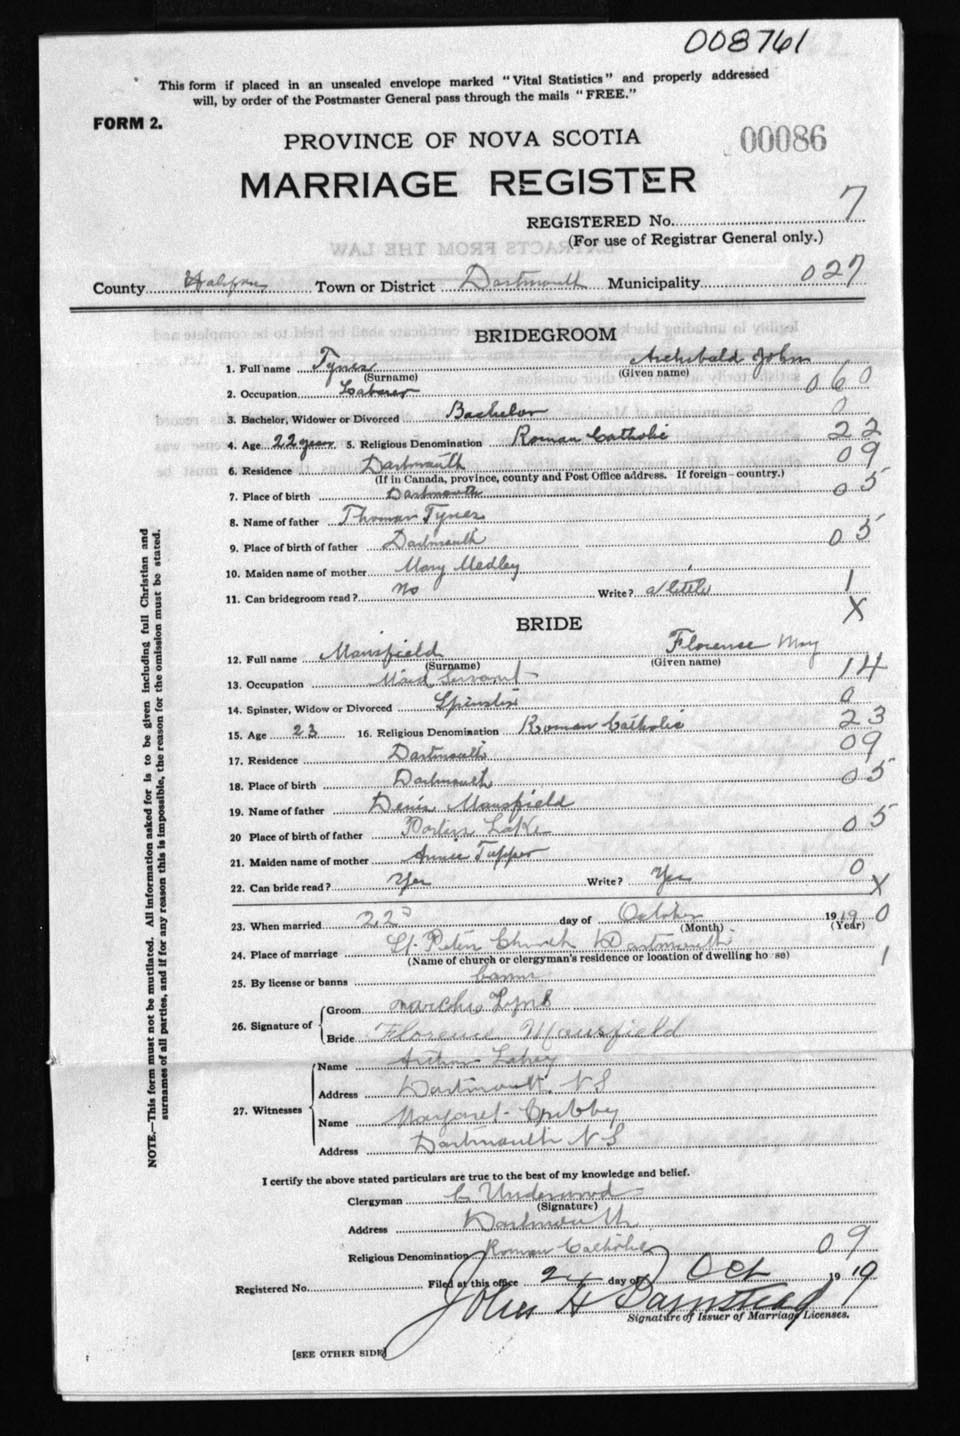 008761
This form if placed in an unsealed envelope marked "Vital Statistics" and properly addressed
will, by order of the Postmaster General pass through the mails "FREE."
FORM 2.
PROVINCE OF NOVA SCOTIA
00086
MARRIAGE REGISTER
REGISTERED No. 7
(For use of Registrar General only.)
County Halifax Town or District Dartmouth Municipality 027
BRIDEGROOM
1. Full name Tynes Archibald John
(Surname) (Given name)
2. Occupation Laborer 060
3. Bachelor, Widower or Divorced Bachelor 0
4. Age 22 years 5. Religious Denomination Roman Catholic 22
6. Residence Dartmouth 09
(If in Canada, province, county and Post Office address. If foreign—country.)
7. Place of birth Dartmouth 05
8. Name of father Thomas Tynes
9. Place of birth of father Dartmouth 05
10. Maiden name of mother Mary Medley
11. Can bridegroom read? No Write? a little 1
X
BRIDE
12. Full name Mansfield Florence May
(Surname) (Given name)
13. Occupation Maid Servant 14
14. Spinster, Widow or Divorced Spinster 0
15. Age 23 16. Religious Denomination Roman Catholic 23
17. Residence Dartmouth 09
18. Place of birth Dartmouth 05
19. Name of father Denis Mansfield
20 Place of birth of father Porters Lake 05
21. Maiden name of mother Annie Tupper
22. Can bride read? Yes Write? Yes 0
X
23. When married 22d day of October 1919 0
(Month) (Year)
24. Place of marriage St. Peters Church Dartmouth
(Name of church or clergyman's residence or location of dwelling house)
25. By license or banns banns 1
26. Signature of
Groom
Bride Florence Mansfield
27. Witnesses
Name Arthur Lahey
Address Dartmouth N S
Name Margaret
Address Dartmouth N S
I certify the above stated particulars are true to the best of my knowledge and belief.
Clergyman C Underwood
(Signature)
Address Dartmouth
Religious Denomination Roman Catholic 09
Registered No. Filed at this office 24 day of Oct 1919
John H
Signature of Issuer of Marriage Licenses.
[SEE OTHER SIDE]
NOTE.—This form must not be mutilated. All information asked for is to be given including full Christian and
surnames of all parties, and if for any reason this is impossible, the reason for the omission must be stated.